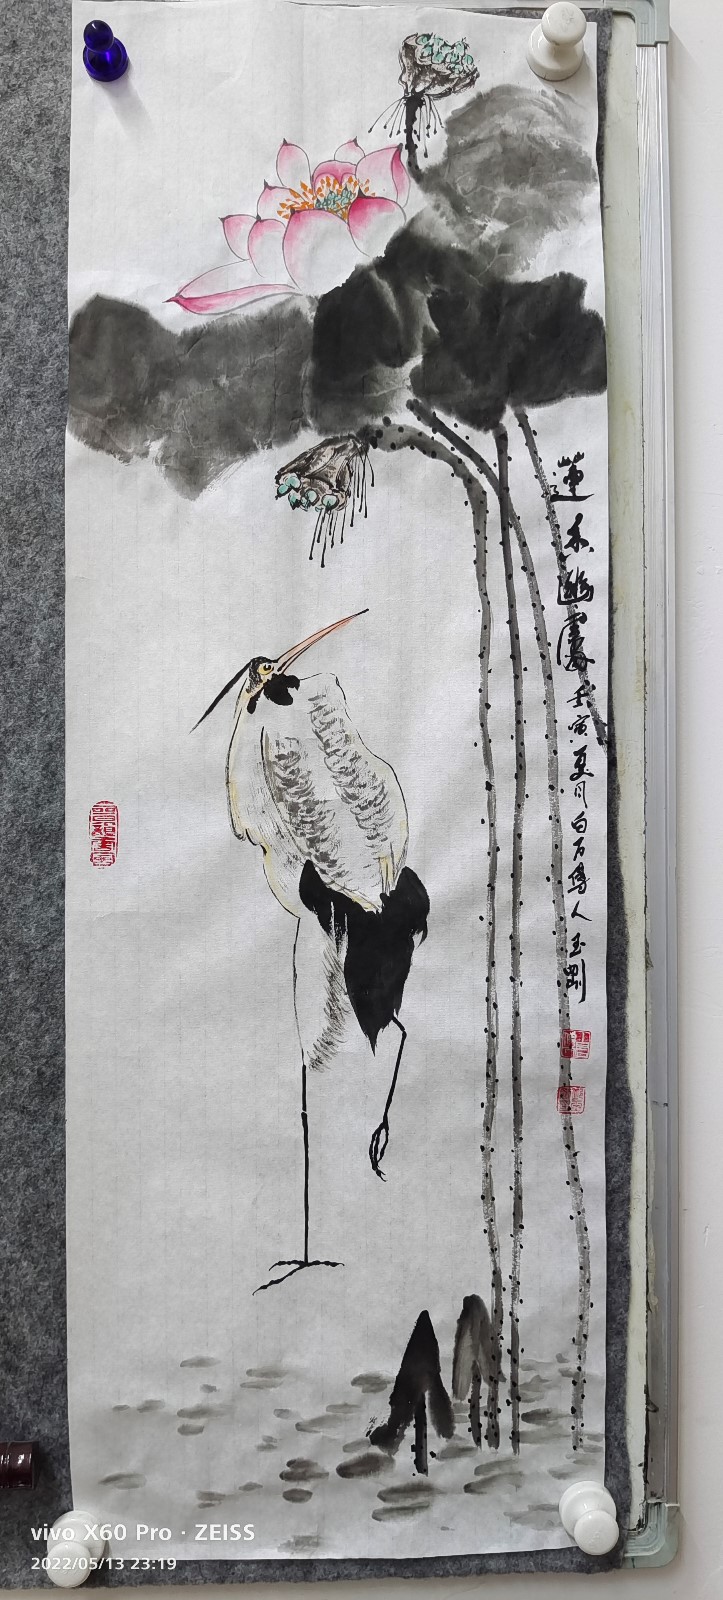 蓮香幽處 壬寅夏月白石傳人玉剛
vivo X60 Pro · ZEISS
2022/05/13 23:19